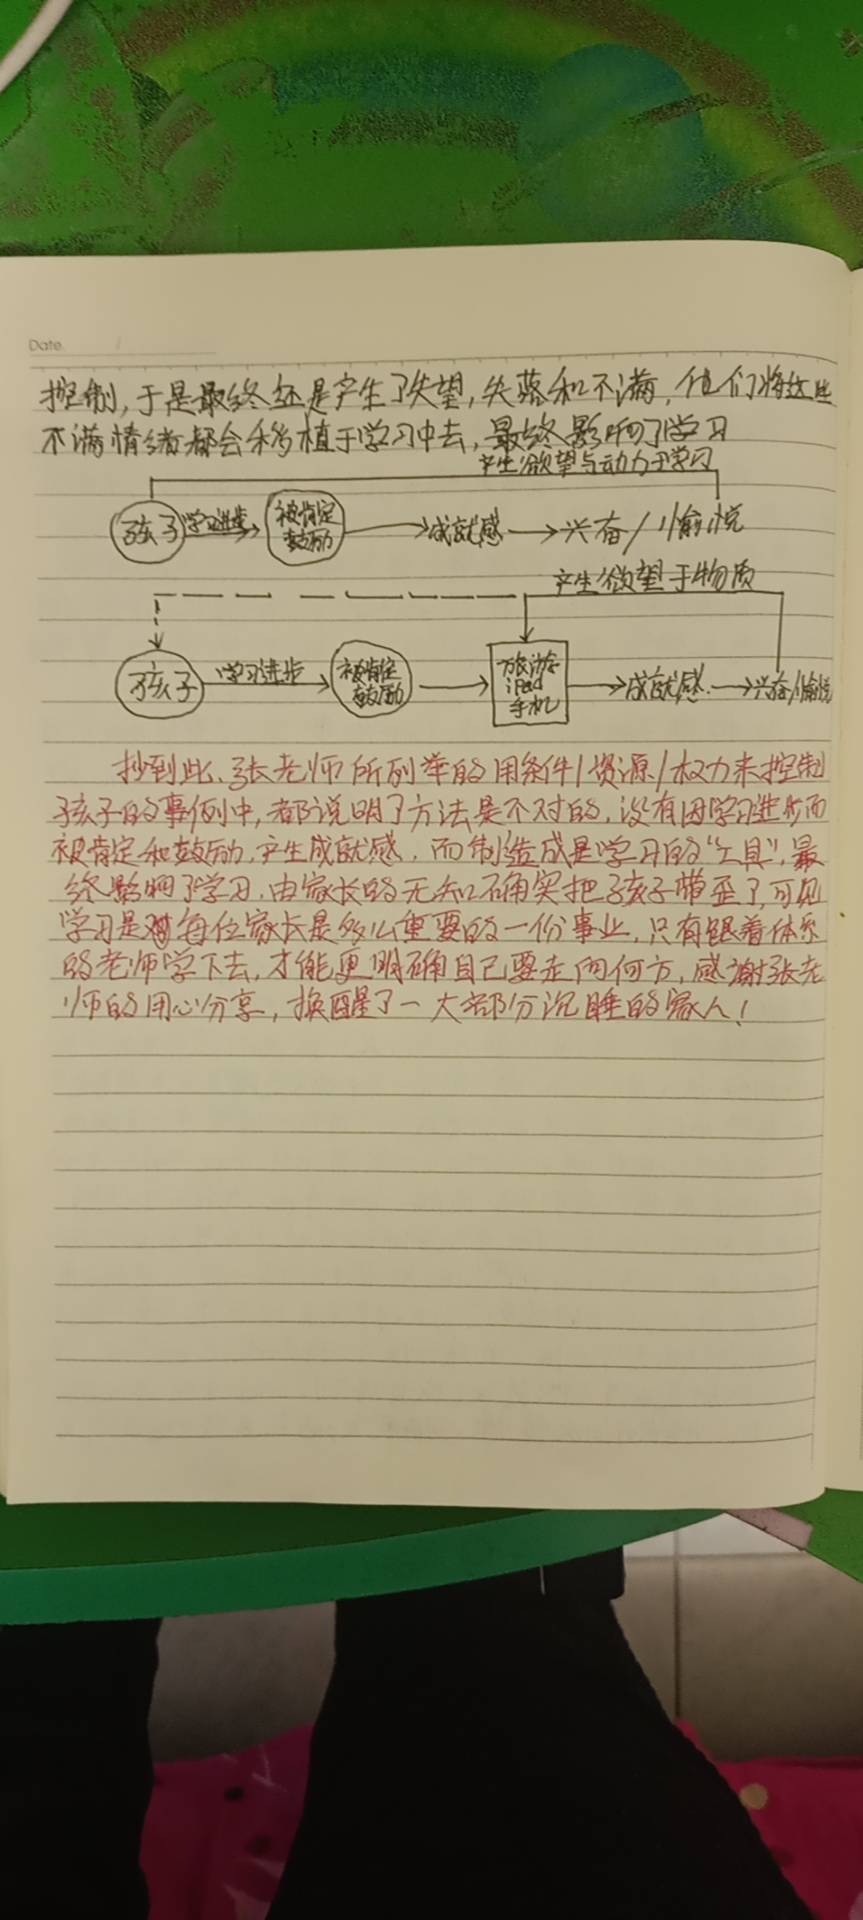 Date.
控制，于是最终还是产生了失望，失落和不满，他们将这些
不满情绪都会移植于学习中去，最终影响了学习
产生欲望与动力于学习
孩子 学习进步 被肯定 成就感 兴奋/愉悦
鼓励
产生欲望于物质
孩子 学习进步 被肯定 旅游 成就感 兴奋/愉悦
鼓励 iPad
手机
抄到此，张老师所列举的用条件/资源/权力来控制
孩子的事例中，都说明了方法是不对的，没有因学习进步而
被肯定和鼓励，产生成就感，而制造成是学习的“工具”，最
终影响了学习，由家长的无知确实把孩子带歪了，可见
学习是对每位家长是多么重要的一份事业，只有跟着体系
的老师学下去，才能更明确自己要走向何方，感谢张老
师的用心分享，换醒了一大部分沉睡的家人！